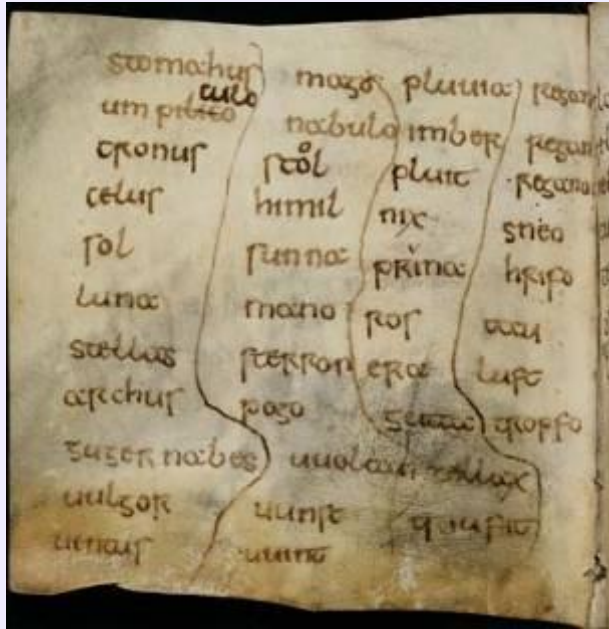 stomahus mago pluuia regan
culo
um nabulo imber regan
tronus stol pluit regano
celus himil nix sneo
sol sunna prina hrifo
luna mano ros tau
stellas sterron era luft
archus pogo gutta tropfo
guger nabes uuolcan
uulgor uunst
uuint